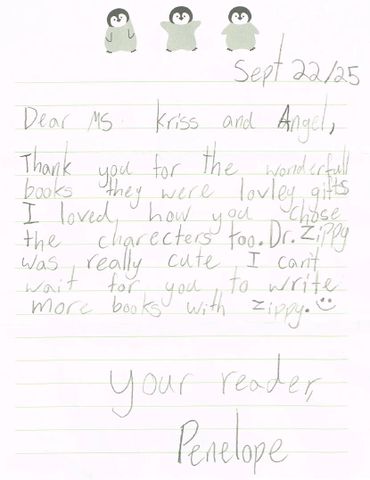 Sept 22/25
Dear Ms. Kriss and Angel,
Thank you for the wonderfull
books they were lovley gifts
I loved how you chose
the charecters too. Dr. Zippy
was really cute I can't
wait for you to write
more books with Zippy.
Your reader,
Penelope